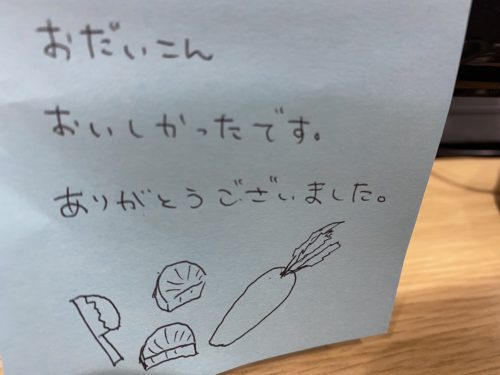 おだいこん
おいしかったです。
ありがとうございました。